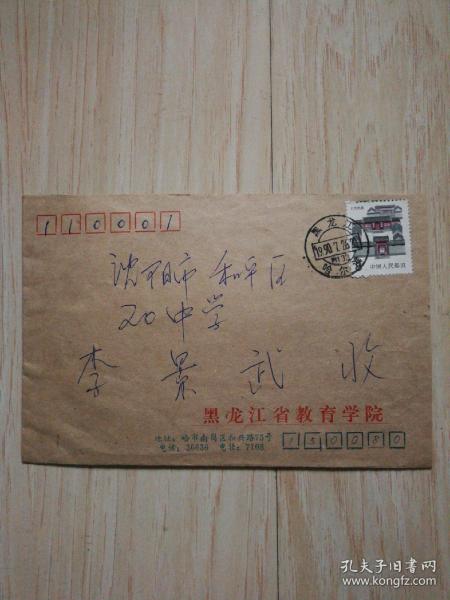 110001
沈阳市 和平区
20中学
李景武 收
黑龙江省教育学院
地址：哈市南岗区和兴路73号
电话：36636 电挂：7108
150080
黑龙江
1990.7.26
哈尔滨
中国人民邮政
孔夫子旧书网
www.kongfz.com